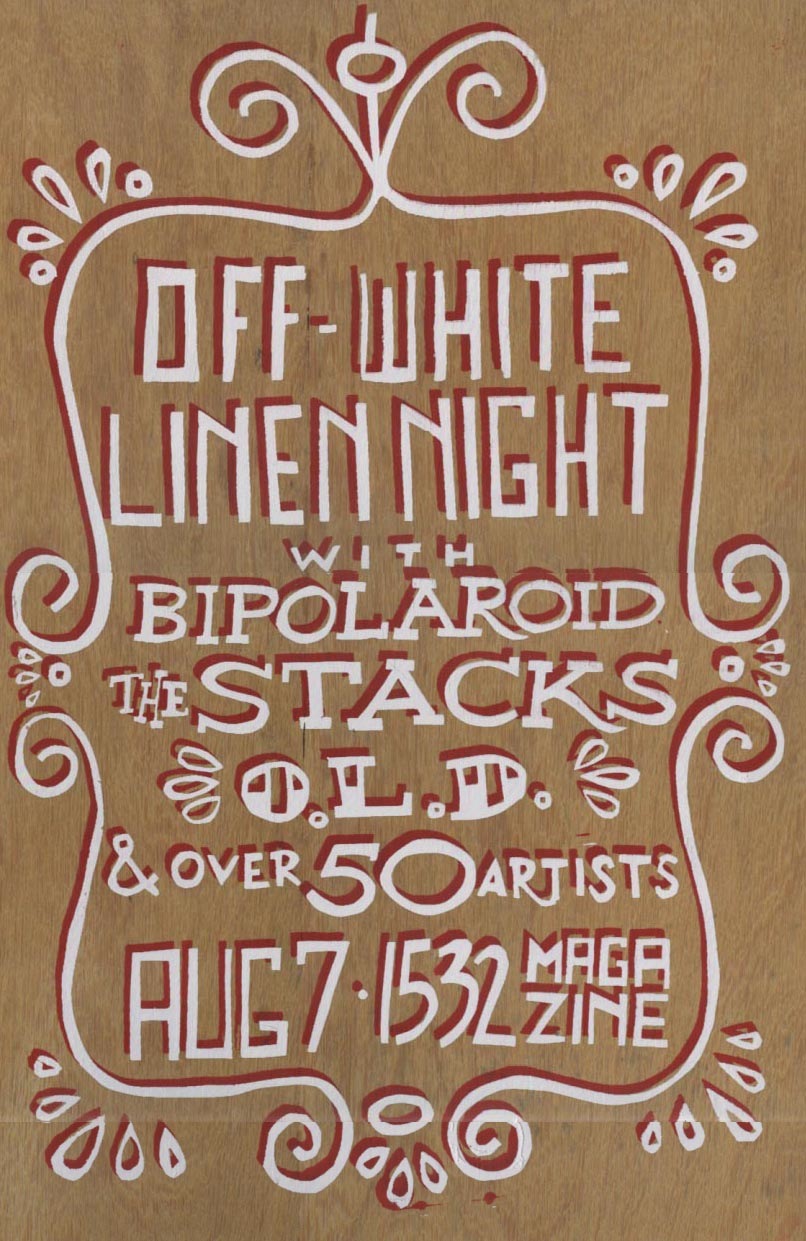 OFF-WHITE
LINEN NIGHT
WITH
BIPOLAROID
THE STACKS
O.L.D.
& OVER 50 ARTISTS
AUG 7 · 1532 MAGA
ZINE